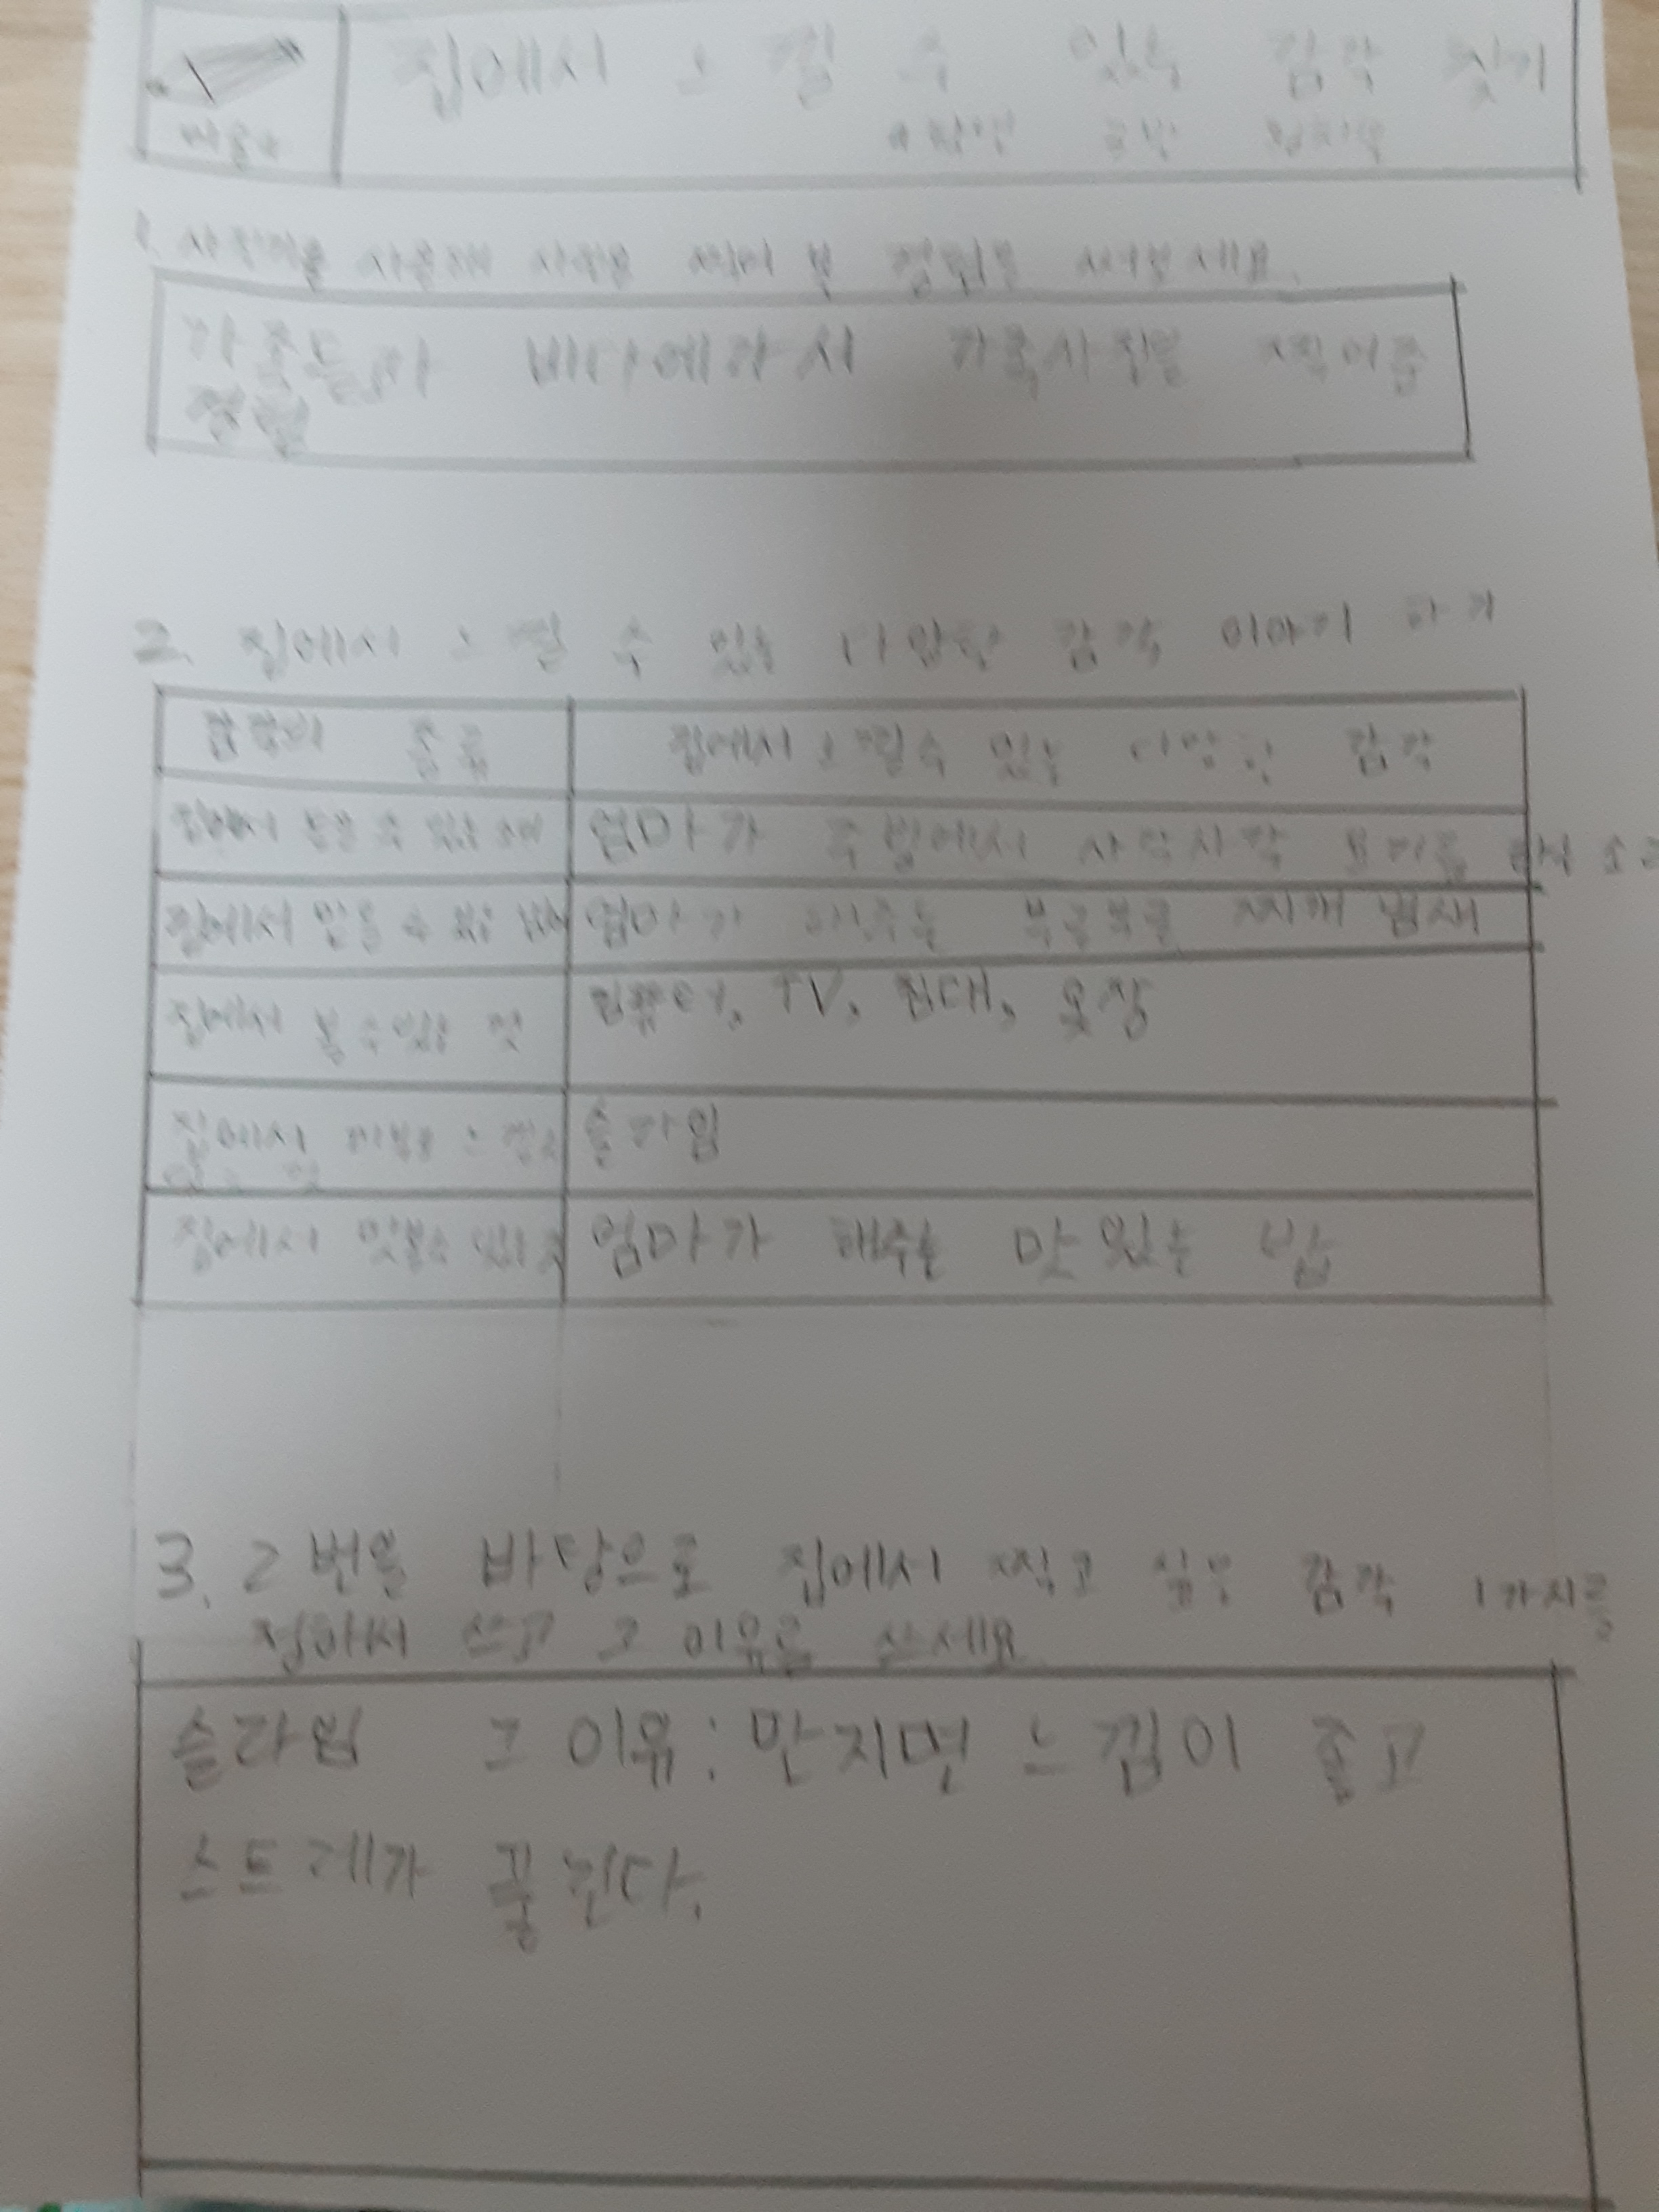 집에서 느낄 수 있는 감각 찾기
4학년
1. 사진기를 사용해 사진을 찍어 본 경험을 써보세요.
가족들과 바다에가서 가족사진을 찍어준
경험
2. 집에서 느낄 수 있는 다양한 감각 이야기 하기
감각의 종류 집에서 느낄수 있는 다양한 감각
집에서 들을 수 있는 소리 엄마가 주방에서 사각사각 요리를 하는 소리
집에서 맡을 수 있는 냄새 엄마가 해주는 부글부글 찌개 냄새
집에서 볼 수 있는 것 컴퓨터, TV, 침대, 옷장
집에서 피부로 느낄수 슬라임
있는 것
집에서 맛볼수 있는 것 엄마가 해주는 맛있는 밥
3. 2번을 바탕으로 집에서 찍고 싶은 감각 1가지를
정하여 쓰고 그 이유를 쓰세요
슬라임 그 이유: 만지면 느낌이 좋고
스트레가 풀린다.